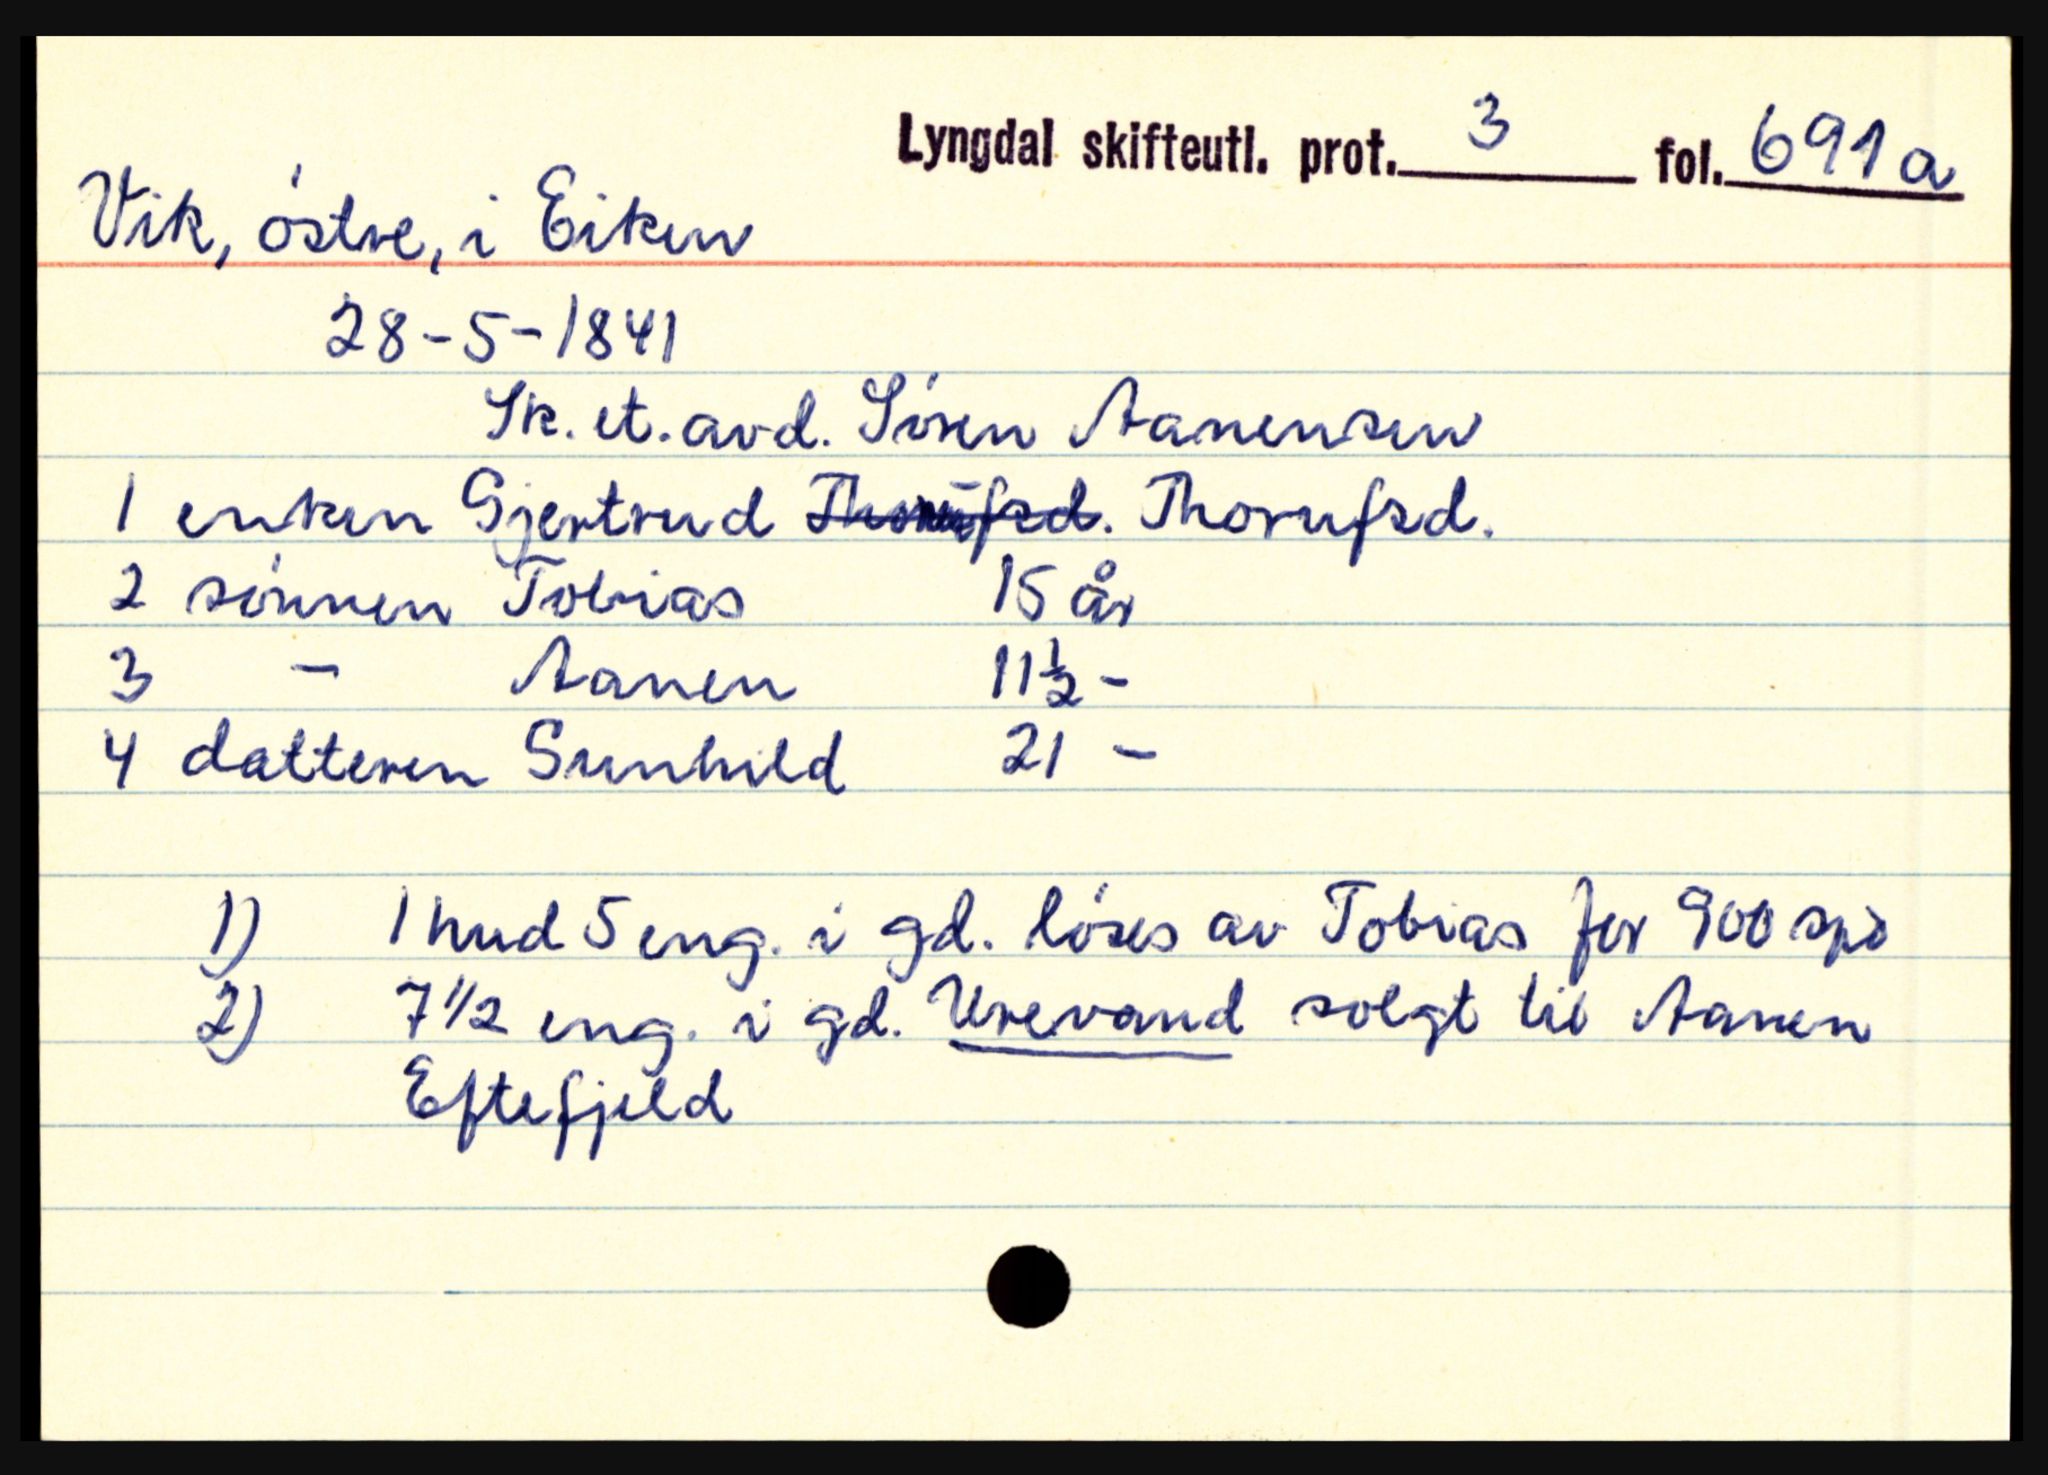 Lyngdal skifteutl. prot. 3 fol. 691a
Vik, østre, i Eiken
28-5-1841
Sk. et. avd. Søren Aanensen
1 enken Gjertrud Thorufsd.
2 sønnen Tobias 15 år
3 - Aanen 11½ -
4 datteren Sunhild 21 -
1) 1 hud 5 eng. i gd. løses av Tobias for 900 spd
2) 7 1/2 eng. i gd. Urevand solgt til Aanen
Eftefjeld